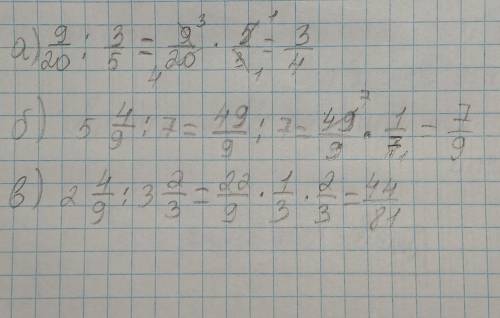 а) 9/20 : 3/5 = 9/20 · 5/3 = 3/4
б) 5 4/9 : 7 = 49/9 : 7 = 49/9 · 1/7 = 7/9
в) 2 4/9 : 3 2/3 = 22/9 · 1/3 · 2/3 = 44/81